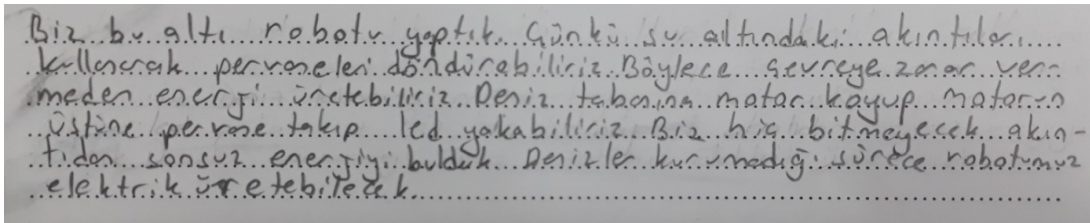 Biz bu altı robotu yaptık. Çünkü su altındaki akıntıları
kullanarak pervaneleri döndürebiliriz. Böylece çevreye zarar ver-
meden enerji üretebiliriz. Deniz tabanına motor koyup motorun
üstüne pervane takıp led yakabiliriz. Biz hiç bitmeyecek akın-
tıdan sonsuz enerjiyi bulduk. Denizler kurumadığı sürece robotumuz
elektrik üretebilecek.